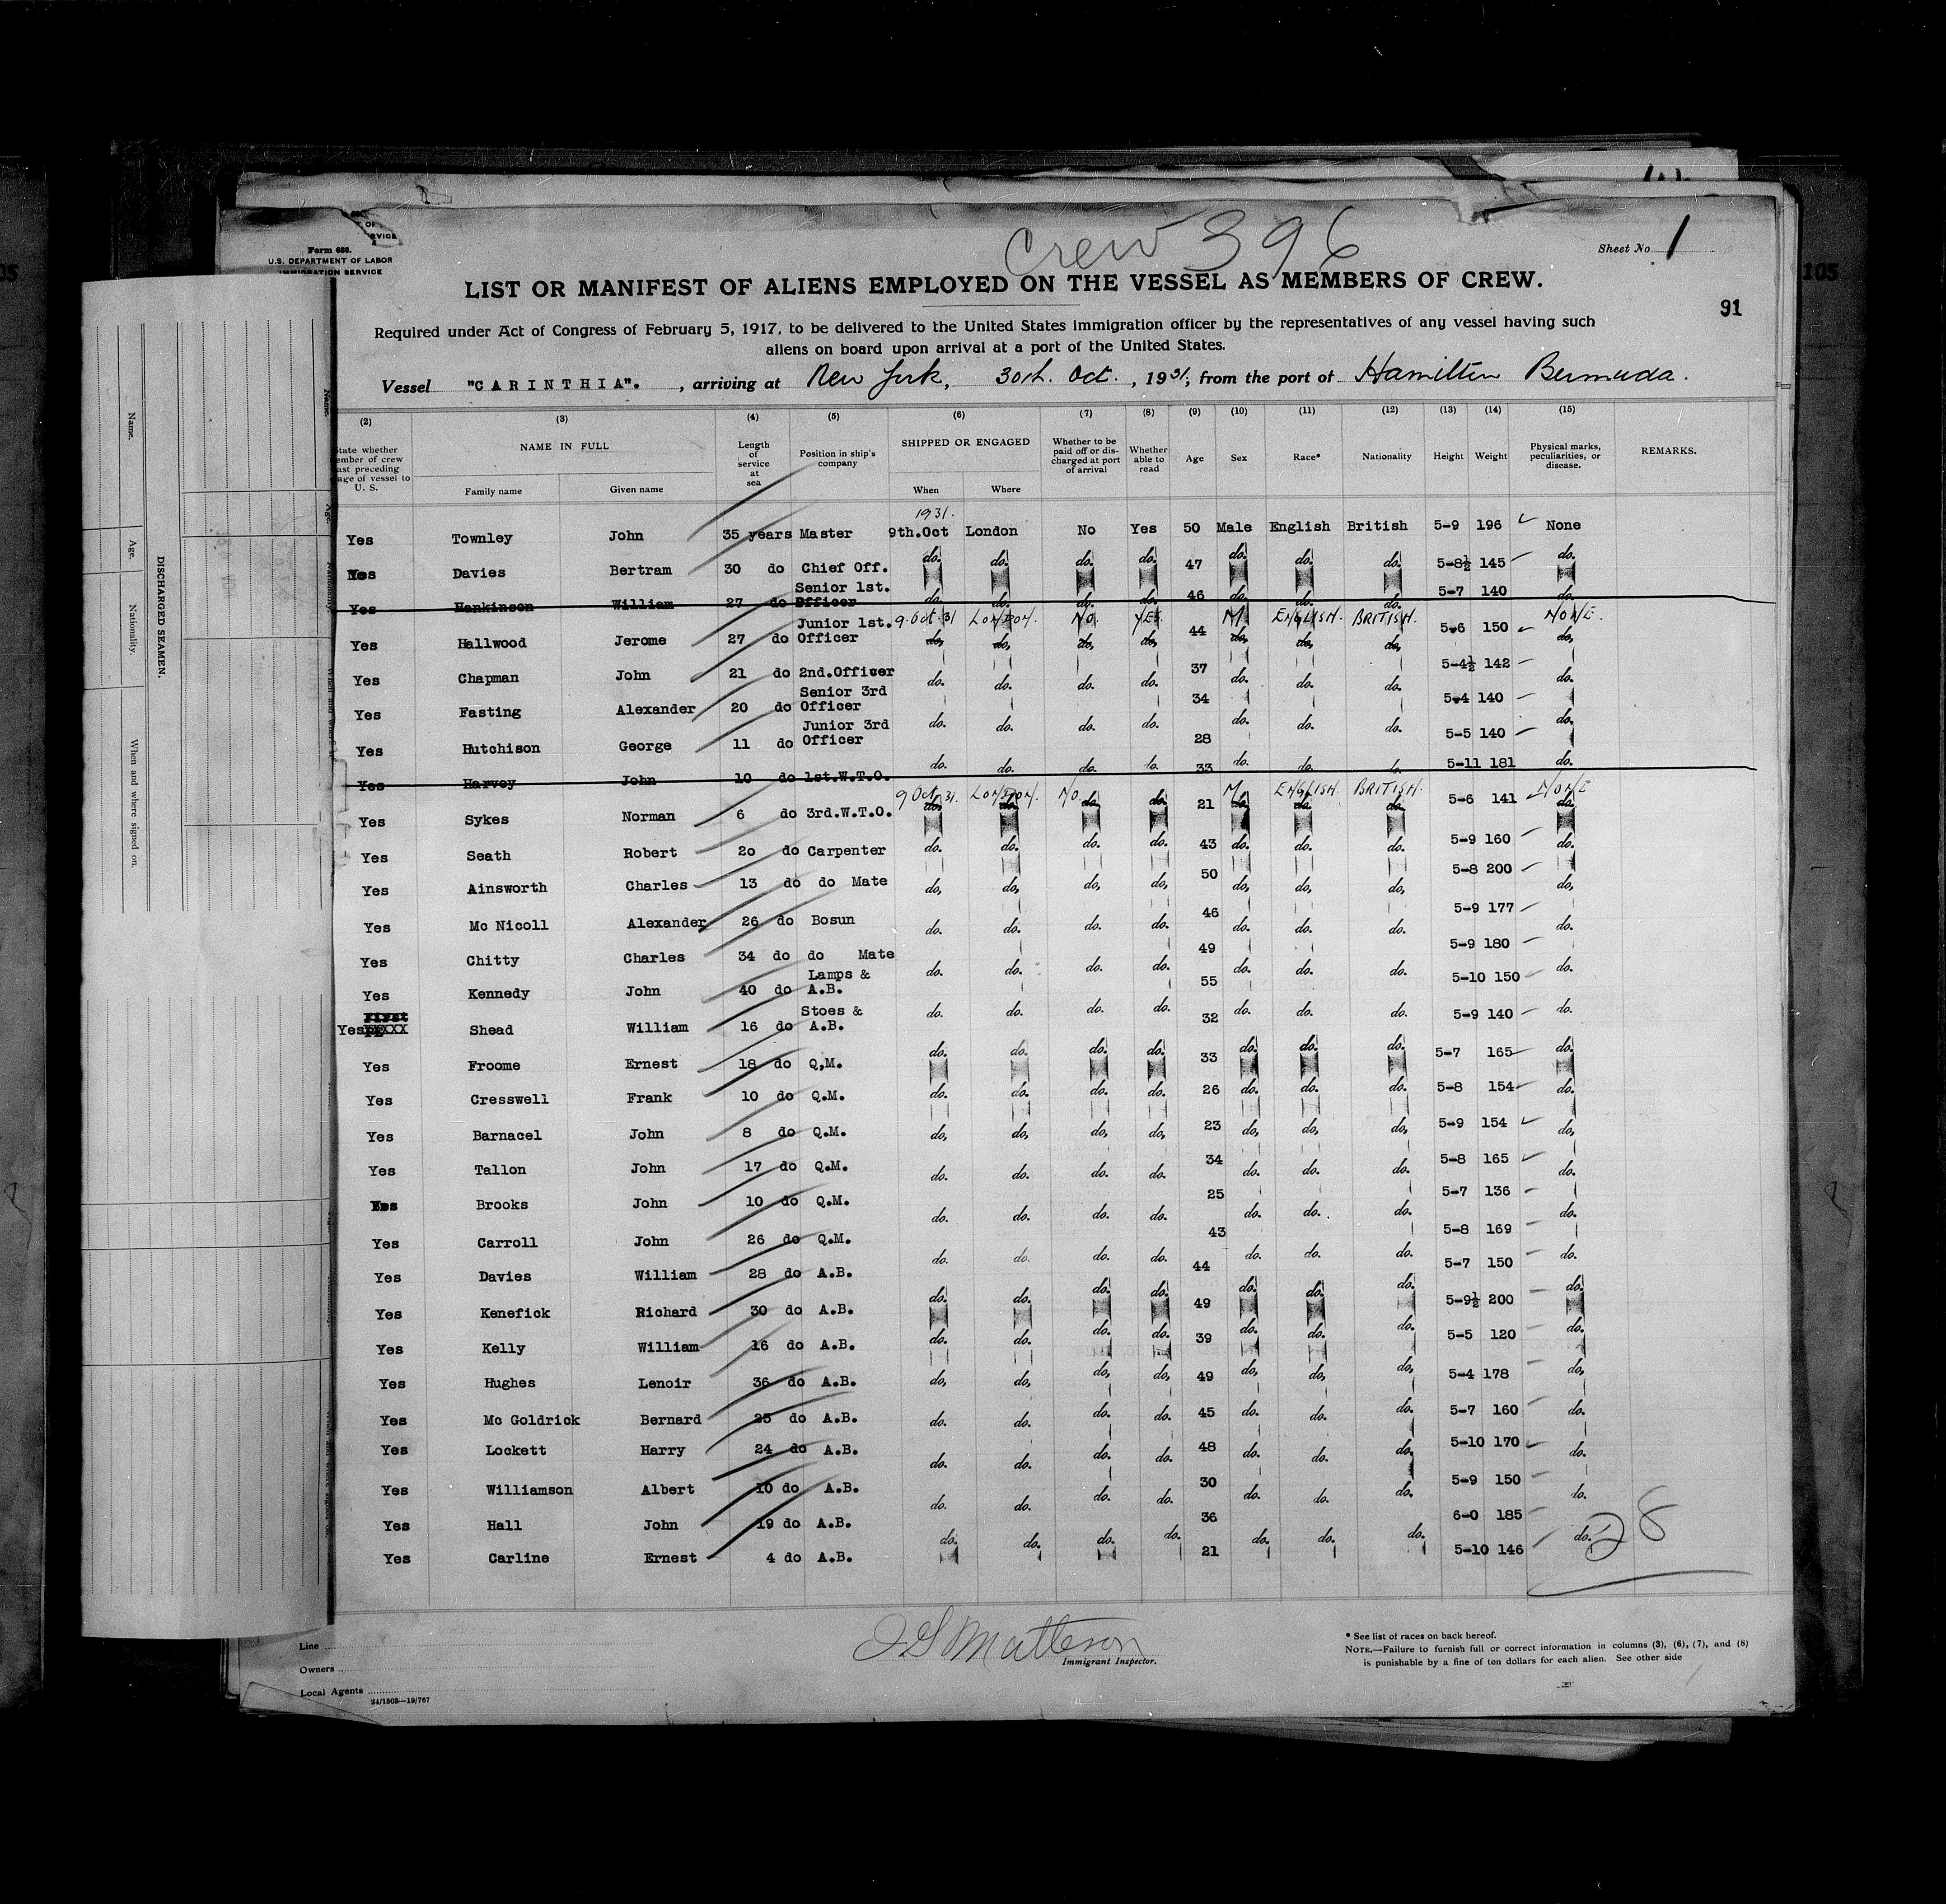 Crew 396
Form 680.
U.S. DEPARTMENT OF LABOR
IMMIGRATION SERVICE
Sheet No. 1
91
105
LIST OR MANIFEST OF ALIENS EMPLOYED ON THE VESSEL AS MEMBERS OF CREW.
Required under Act of Congress of February 5, 1917, to be delivered to the United States immigration officer by the representatives of any vessel having such
aliens on board upon arrival at a port of the United States.
Vessel "CARINTHIA". , arriving at New York, 30th. Oct. , 1931, from the port of Hamilton Bermuda.
(2) (3) (4) (5) (6) (7) (8) (9) (10) (11) (12) (13) (14) (15)
State whether member of crew last preceding voyage of vessel to U. S. NAME IN FULL Length of service at sea Position in ship's company SHIPPED OR ENGAGED Whether to be paid off or discharged at port of arrival Whether able to read Age Sex Race* Nationality Height Weight Physical marks, peculiarities, or disease. REMARKS.
Family name Given name When Where
1931.
Yes Townley John 35 years Master 9th.Oct London No Yes 50 Male English British 5-9 196 None
Yes Davies Bertram 30 do Chief Off. do. do. do. do. 47 do. do. do. 5-8½ 145 do.
Yes Hankinson William 27 do Senior 1st. Officer do. do. do. do. 46 do. do. do. 5-7 140 do.
Yes Hallwood Jerome 27 do Junior 1st. Officer 9.Oct.31 LONDON. NO. YES. 44 M ENGLISH. BRITISH. 5-6 150 NONE.
Yes Chapman John 21 do 2nd.Officer do. do. do. do. 37 do. do. do. 5-4½ 142 do.
Yes Fasting Alexander 20 do Senior 3rd Officer do. do. do. do. 34 do. do. do. 5-4 140 do.
Yes Hutchison George 11 do Junior 3rd Officer do. do. do. do. 28 do. do. do. 5-5 140 do.
Yes Harvey John 10 do 1st.W.T.O. 33 5-11 181
Yes Sykes Norman 6 do 3rd.W.T.O. 9 Oct 31. LONDON. NO do. 21 M. ENGLISH. BRITISH. 5-6 141 NONE
Yes Seath Robert 20 do Carpenter do. do. do. do. 43 do. do. do. 5-9 160 do.
Yes Ainsworth Charles 13 do do Mate do. do. do. do. 50 do. do. do. 5-8 200 do.
Yes Mc Nicoll Alexander 26 do Bosun do. do. do. do. 46 do. do. do. 5-9 177 do.
Yes Chitty Charles 34 do do Mate do. do. do. do. 49 do. do. do. 5-9 180 do.
Yes Kennedy John 40 do Lamps & A.B. do. do. do. do. 55 do. do. do. 5-10 150 do.
Yes Shead William 16 do Stoes & A.B. do. do. do. do. 32 do. do. do. 5-9 140 do.
Yes Froome Ernest 18 do Q,M. do. do. do. do. 33 do. do. do. 5-7 165 do.
Yes Cresswell Frank 10 do Q.M. do. do. do. do. 26 do. do. do. 5-8 154 do.
Yes Barnacel John 8 do Q.M. do. do. do. do. 23 do. do. do. 5-9 154 do.
Yes Tallon John 17 do Q.M. do. do. do. do. 34 do. do. do. 5-8 165 do.
Yes Brooks John 10 do Q.M. do. do. do. do. 25 do. do. do. 5-7 136 do.
Yes Carroll John 26 do Q.M. do. do. do. do. 43 do. do. do. 5-8 169 do.
Yes Davies William 28 do A.B. do. do. do. do. 44 do. do. do. 5-7 150 do.
Yes Kenefick Richard 30 do A.B. do. do. do. do. 49 do. do. do. 5-9½ 200 do.
Yes Kelly William 16 do A.B. do. do. do. do. 39 do. do. do. 5-5 120 do.
Yes Hughes Lenoir 36 do A.B. do. do. do. do. 49 do. do. do. 5-4 178 do.
Yes Mc Goldrick Bernard 25 do A.B. do. do. do. do. 45 do. do. do. 5-7 160 do.
Yes Lockett Harry 24 do A.B. do. do. do. do. 48 do. do. do. 5-10 170 do.
Yes Williamson Albert 10 do A.B. do. do. do. do. 30 do. do. do. 5-9 150 do.
Yes Hall John 19 do A.B. do. do. do. do. 36 do. do. do. 6-0 185 do.
Yes Carline Ernest 4 do A.B. 21 5-10 146
28
Line
Owners
Local Agents
24/1503—19/767
J S Matteson
Immigrant Inspector.
* See list of races on back hereof.
NOTE.—Failure to furnish full or correct information in columns (3), (6), (7), and (8)
is punishable by a fine of ten dollars for each alien. See other side
DISCHARGED SEAMEN.
Name.
Age.
Nationality.
When and where signed on.